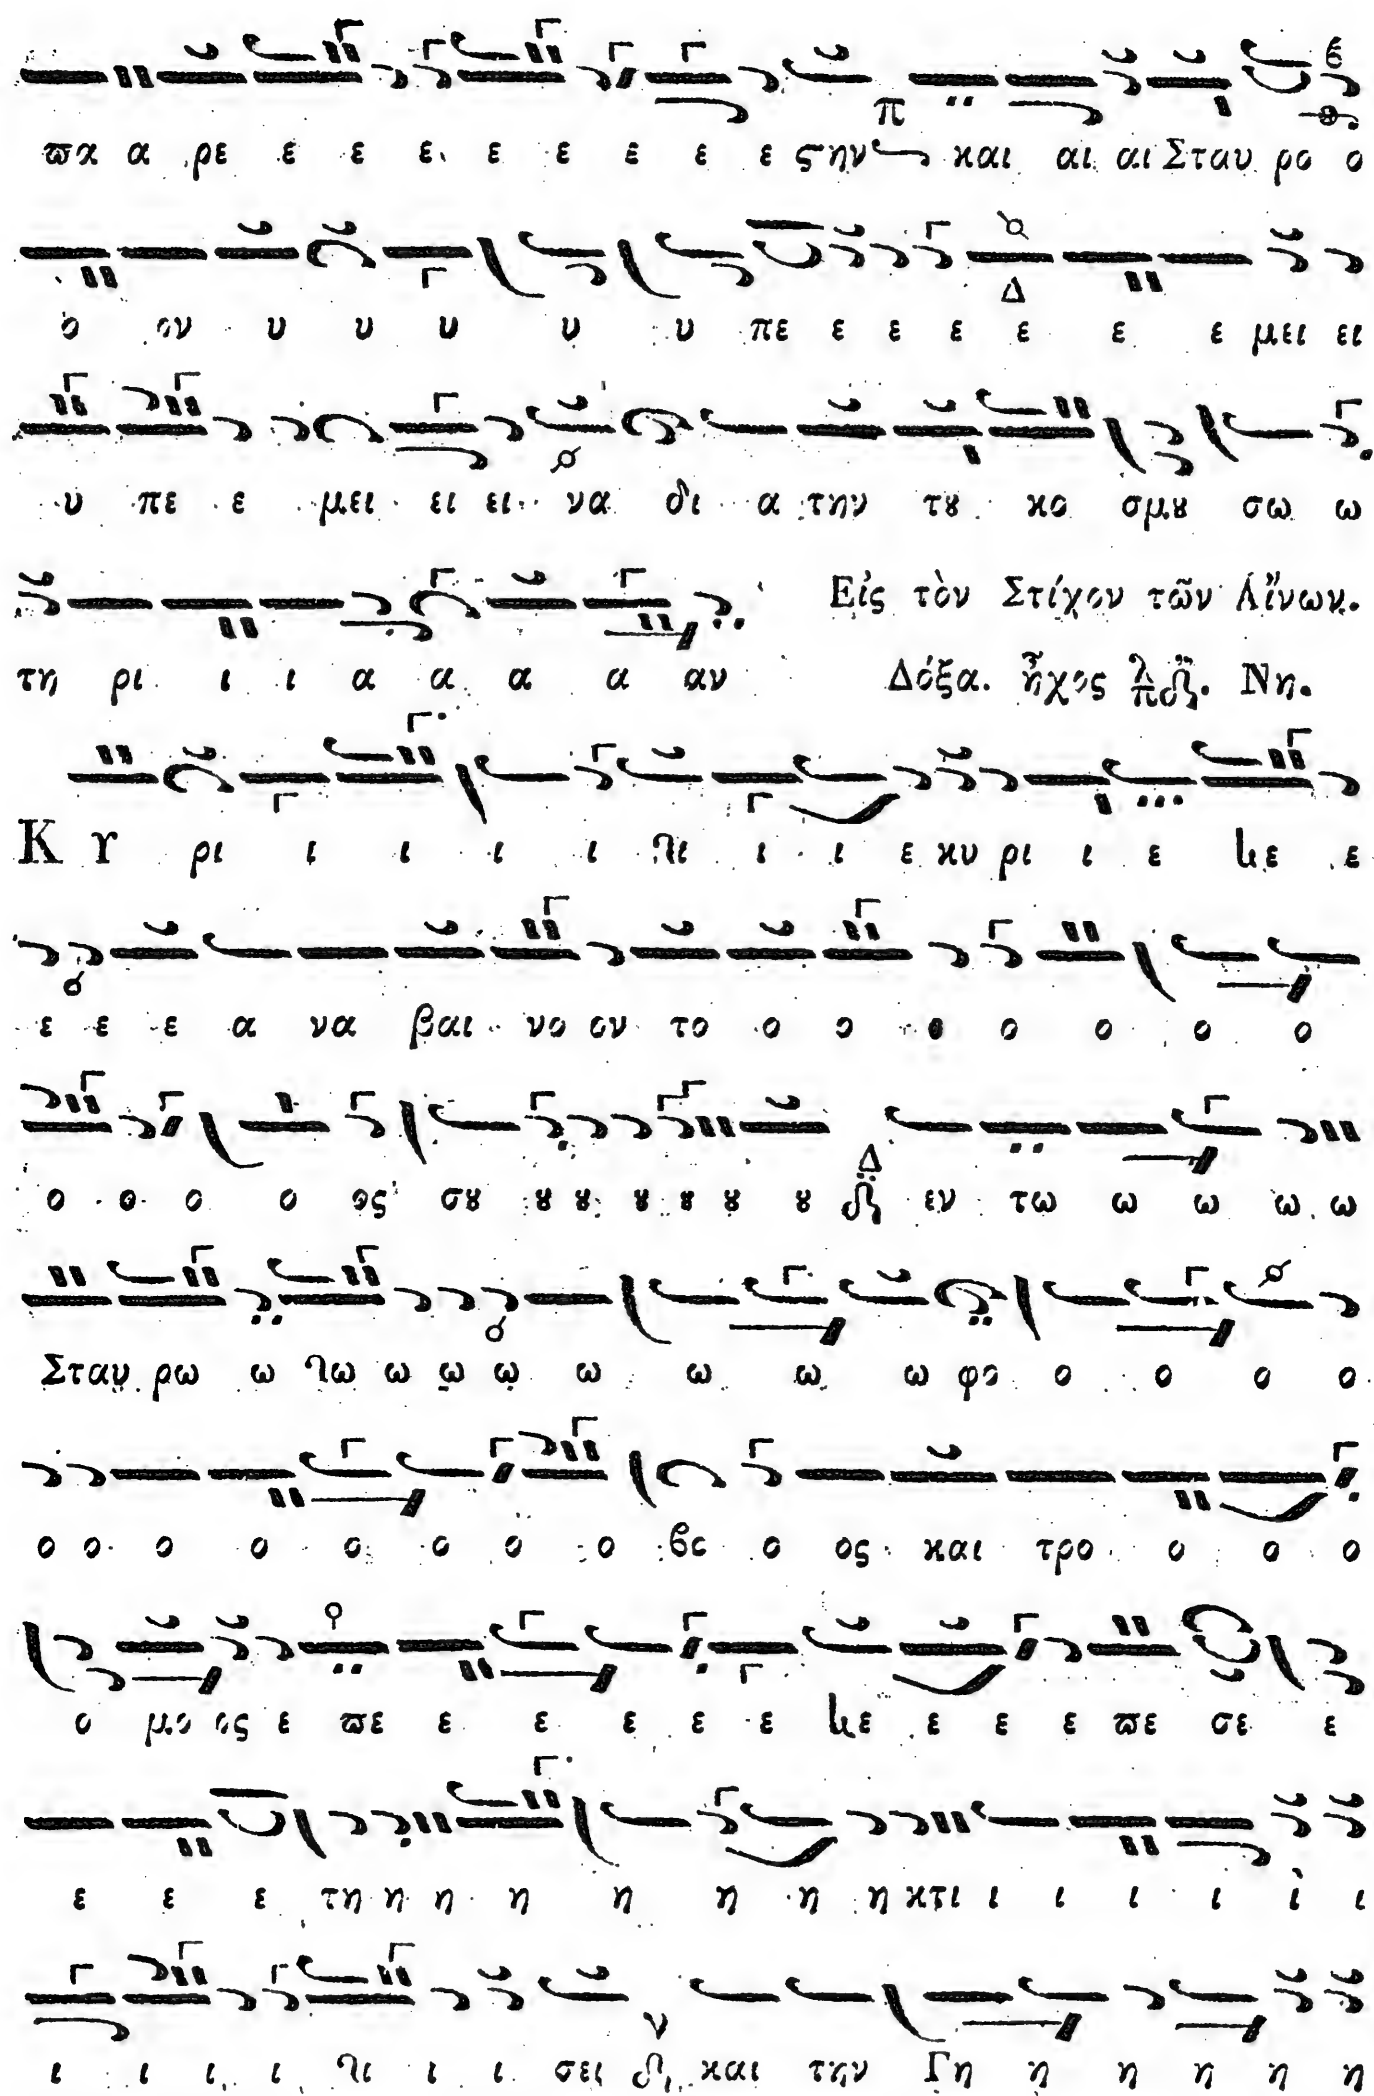 πα α ρε ε ε ε ε ε ε ε ε ςην και αι αι Σταυ ρο ο
ο ον υ υ υ υ υ πε ε ε ε ε ε ε μει ει
υ πε ε μει ει ει να δι α την τȣ κο σμȣ σω ω
τη ρι ι ι α α α α αν Εἰς τὸν Στίχον τῶν Αἴνων.
Δόξα. ἦχος λ π Νη.
Κ Υ ρι ι ι ι ι ι ι ι ε κυ ρι ι ε ε ε
ε ε ε α να βαι νο ον το ο ο ο ο ο ο ο
ο ο ο ο ος σȣ ȣ ȣ ȣ ȣ ȣ ȣ Δ εν τω ω ω ω ω
Σταυ ρω ω ω ω ω ω ω ω ω ω φο ο ο ο ο
ο ο ο ο ο ο ο ο βο ο ος και τρο ο ο ο
ο μο ος ε πε ε ε ε ε ε ε ε ε ε πε σε ε
ε ε ε τη η η η η η η η κτι ι ι ι ι ι ι
ι ι ι ι ι ι ι σει ν και την Γη η η η η η